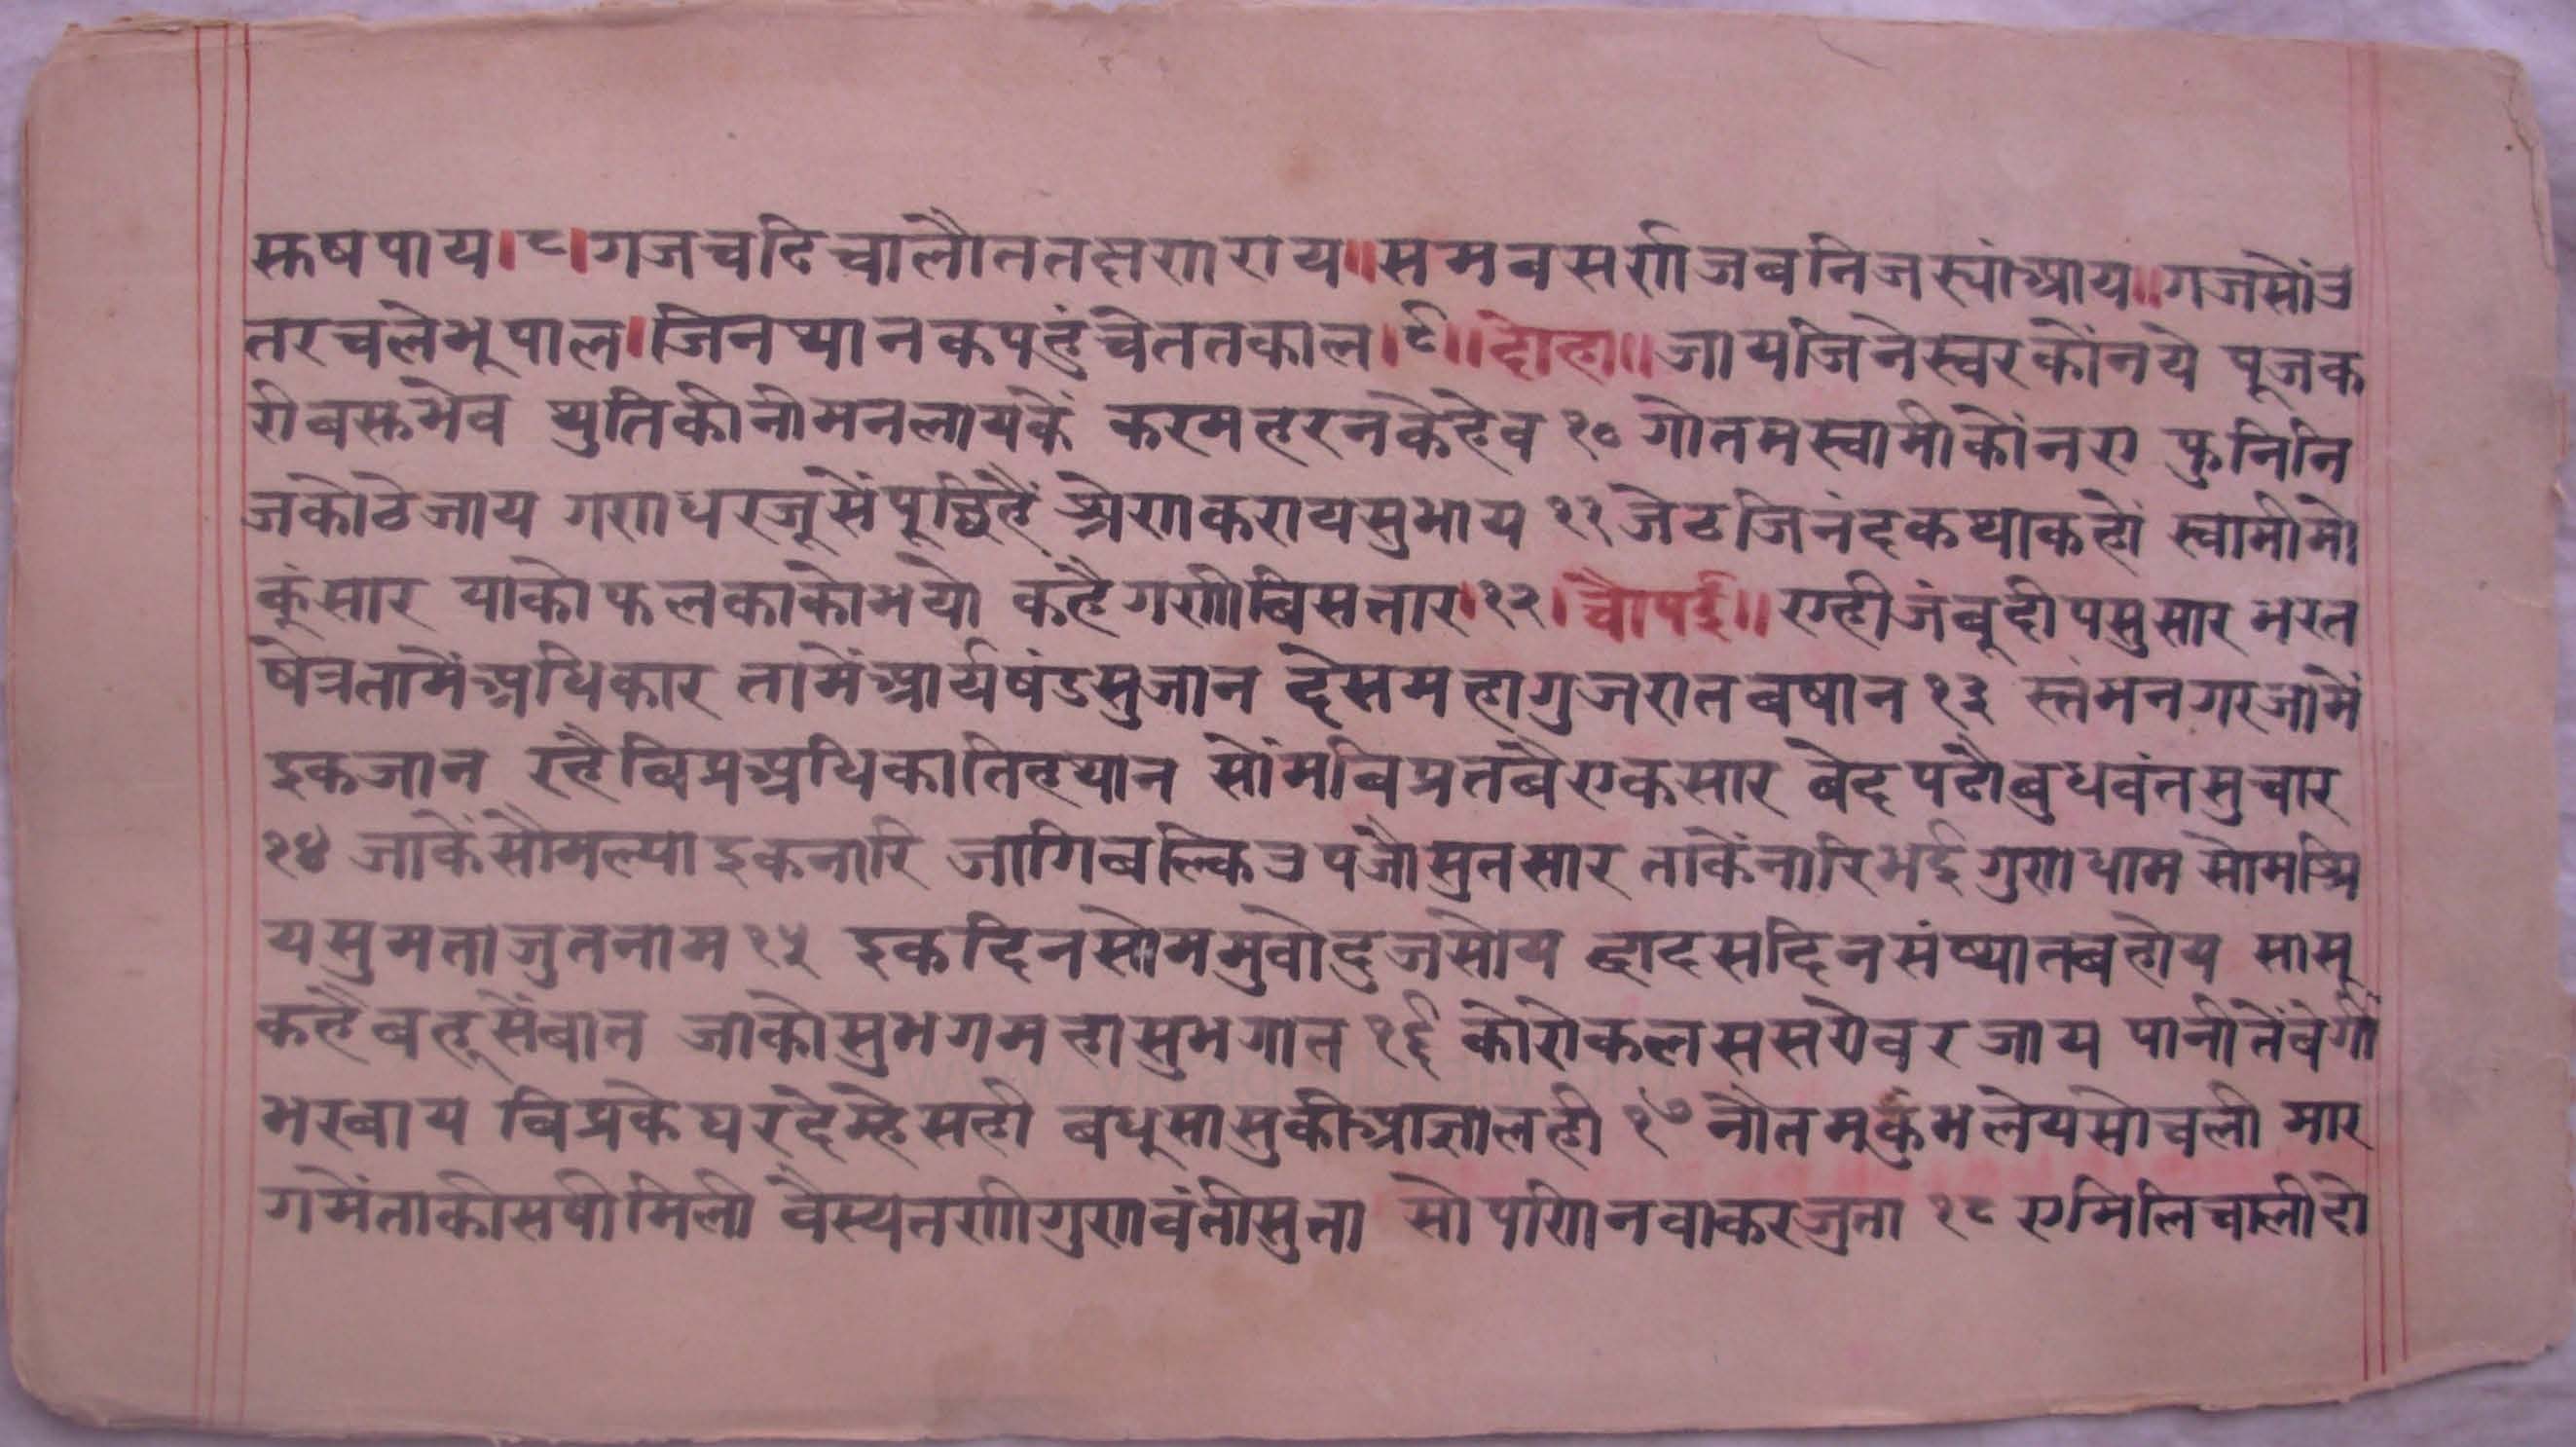 स्कषपाय।८।गजचढिचालौततक्षणराय॥समवसर्णजबनिजरुयांआय॥गजसोंउ
तरचलेभूपाल।जिनथानकपहुंचेततकाल।९॥दोहा॥जायजिनेस्वरकोंनये पूजक
रीबस्कभेव थुतिकीनीमनलायकें करमहरनकेहेव १० गोतमस्वामीकोंनए फुनिनि
जकोठेजाय गणधरजूसेंपूछिहैं श्रेणकरायसुभाय ११ जेठजिनंदकथाकहों स्वामीमो
कूंसार याकोफलकाकोभयो कहैगणीबिसतार।१२।चौपई॥एहीजंबूदीपसुसार भरत
षेत्रतामैंअधिकार तामेंआर्यषंडसुजान देसमहागुजरातबषान १३ स्तंभनगरजामें
इकजान रहैबिप्रअधिकातिहथान सोंमबिप्रतबैएकसार बेदपढौबुधवंतसुचार
१४ जाकेंसौमल्याइकनारि जागिबल्किउपजौसुतसार ताकेंनारिभईगुणधाम सोमश्रि
यसुमताजुतनाम १५ इकदिनसोममुवोदुजसोय द्वादसदिनसंष्यातबहोय सासू
कहैबहूसेंबात जाकोसुभगमहासुभगात १६ कोरोकलससरोवरजाय पानीतेंबेगी
भरबाय बिप्रकेघरदेम्हैसही बधूसासुकीआज्ञालही १७ नौतमकुंभलेयसोचली मार
गमेंताकीसषीमिली वैस्यतणीगुणवंतीसुता सोपणिनवाकरजुता १८ एमिलिचालीदो